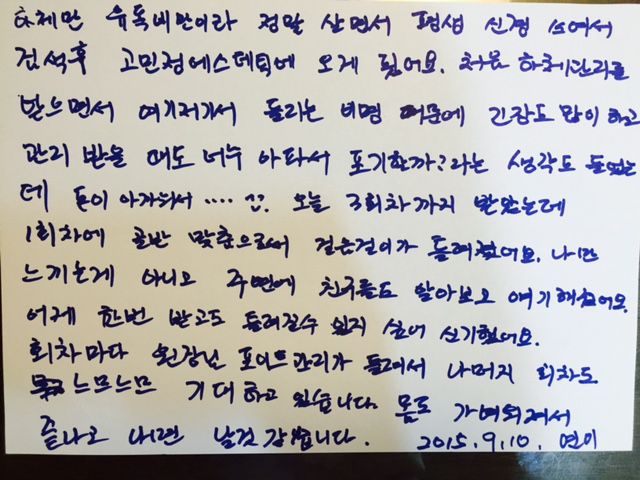 하체만 유독비만이라 정말 살면서 평생 신경 쓰여서
검색후 고민정에스테틱에 오게 됬어요. 처음 하체관리를
받으면서 여기저기서 들리는 비명 때문에 긴장도 많이 하고
관리 받을 때도 너무 아파서 포기할까?라는 생각도 들었는
데 돈이 아까워서 .... 오늘 3회차까지 받았는데
1회차에 골반 맞춤으로써 걸은걸이가 달려졌어요. 나만
느끼는게 아니고 주변에 친구들도 알아보고 얘기해줬어요.
어제 한번 받고도 달려질수 있지 싶어 신기했어요.
회차마다 원장님 포인트관리가 들려서 나머지 회차도
느므느므 기대하고 있습니다. 몸도 가벼워져서
끝나고 나면 날것 같습니다. 2015.9.10. 연이